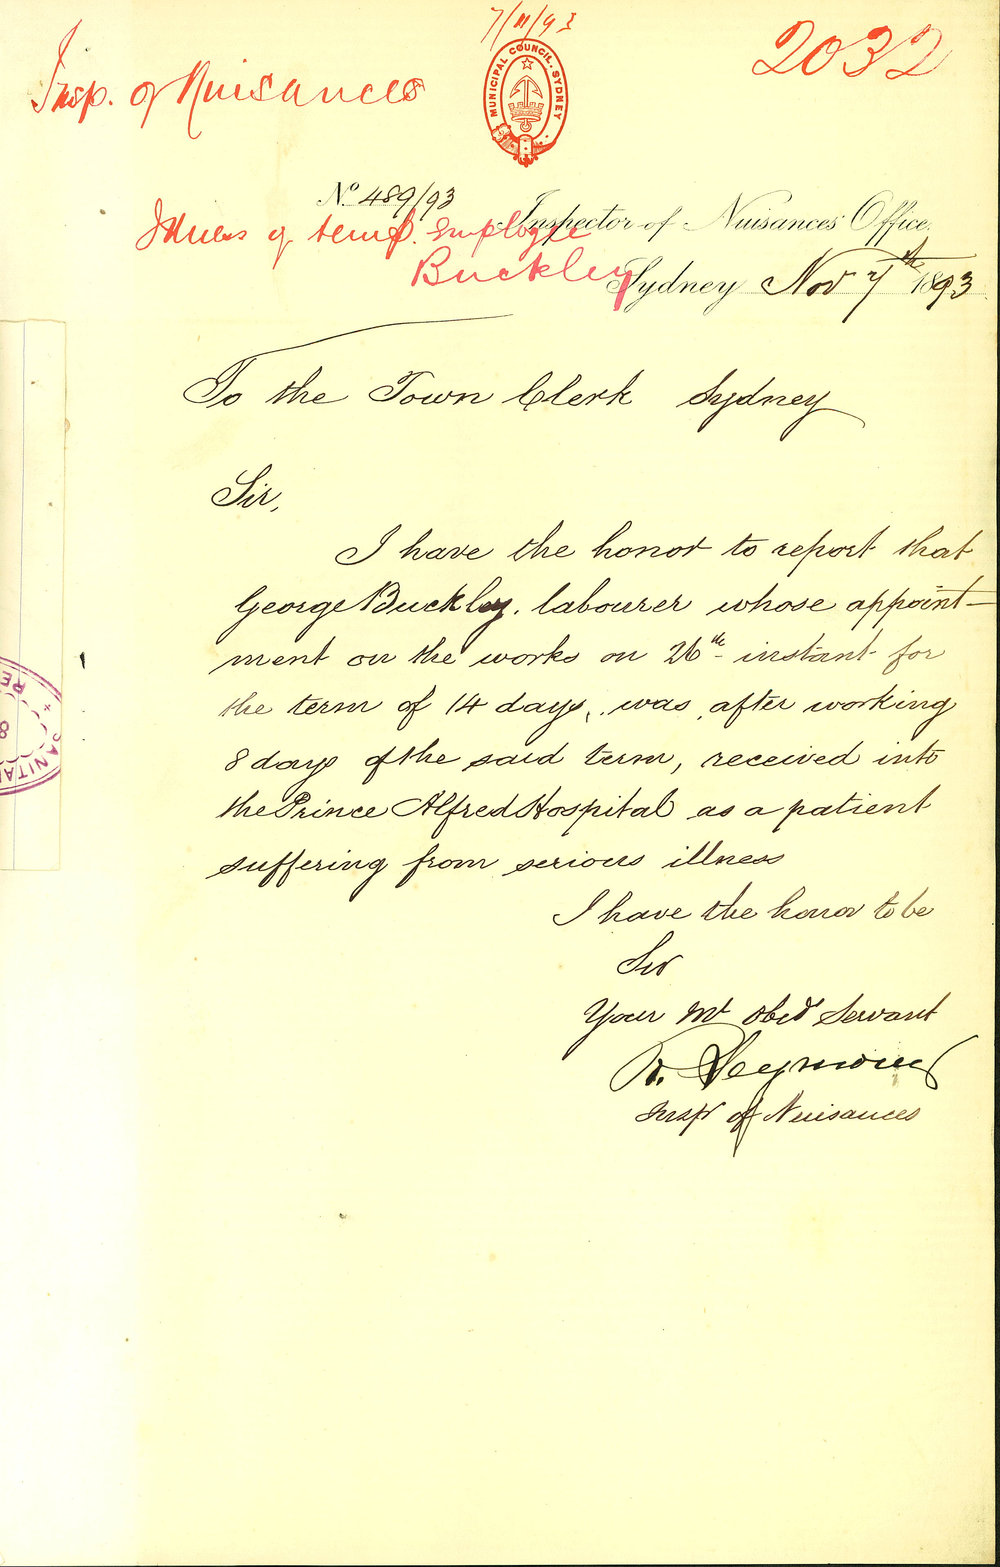 7/11/93
2032
Insp. of Nuisances
MUNICIPAL COUNCIL. SYDNEY
No. 489/93
Inspector of Nuisances Office,
Illness of temp. employee
Buckley
Sydney Nov 7th 1893
To the Town Clerk Sydney
Sir,
I have the honor to report that
George Buckley. labourer whose appoint-
ment on the works on 26th instant for
the term of 14 days, was, after working
8 days of the said term, received into
the Prince Alfred Hospital as a patient
suffering from serious illness
I have the honor to be
Sir
Your Mt Obedt Servant
R. Seymour
Inspr of Nuisances
SANITA
RE
8